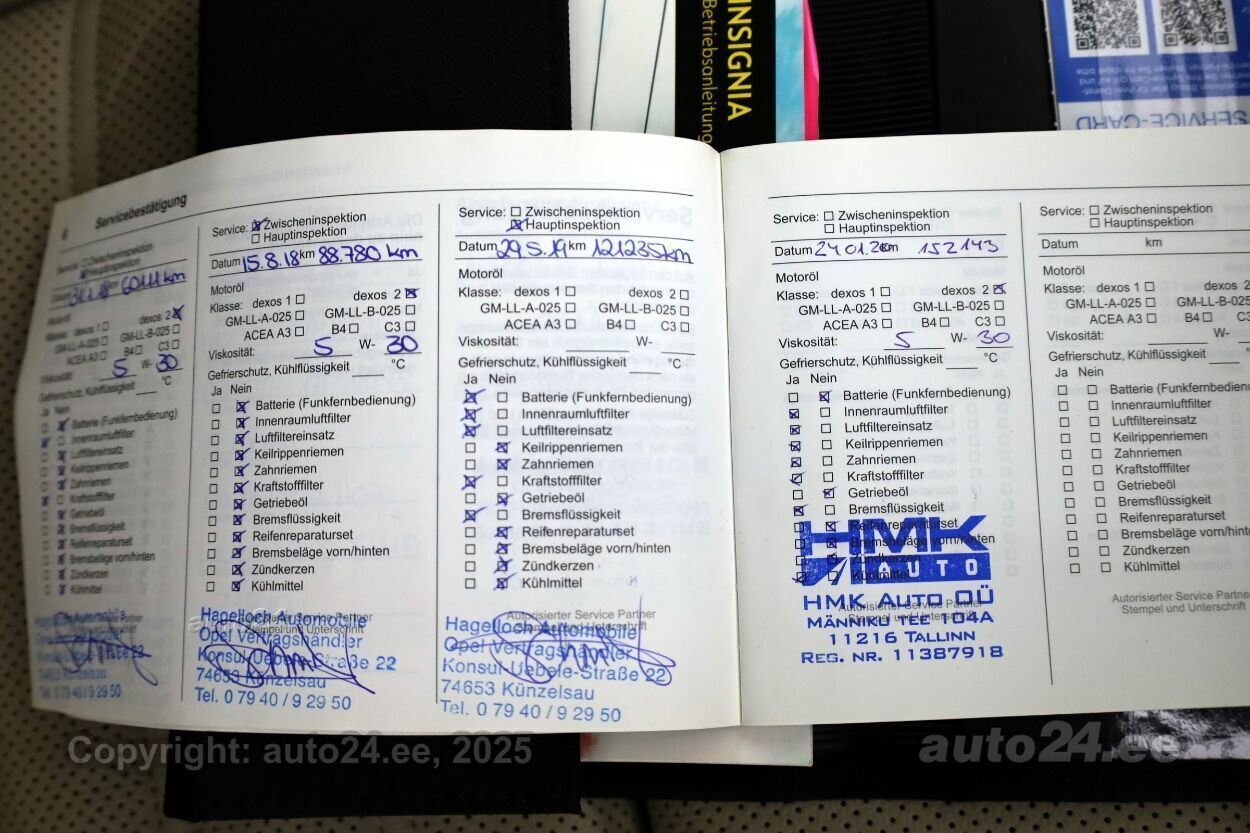 INSIGNIA
Betriebsanleitung
SERVICE-CARD
Servicebestätigung
Service: Zwischeninspektion
Hauptinspektion
km
Klasse: dexos 1 dexos 2
GM-LL-A-025 GM-LL-B-025
ACEA A3 B4 C3
Viskosität: 5 W- 30
Gefrierschutz, Kühlflüssigkeit °C
Ja Nein
Batterie (Funkfernbedienung)
Innenraumluftfilter
Luftfiltereinsatz
Keilrippenriemen
Zahnriemen
Kraftstofffilter
Getriebeöl
Bremsflüssigkeit
Reifenreparaturset
Bremsbeläge vorn/hinten
Zündkerzen
Kühlmittel
Tel. 0 79 40 / 9 29 50
Service: Zwischeninspektion
Hauptinspektion
Datum 15.8.18 km 88.780 km
Motoröl
Klasse: dexos 1 dexos 2
GM-LL-A-025 GM-LL-B-025
ACEA A3 B4 C3
Viskosität: 5 W- 30
Gefrierschutz, Kühlflüssigkeit °C
Ja Nein
Batterie (Funkfernbedienung)
Innenraumluftfilter
Luftfiltereinsatz
Keilrippenriemen
Zahnriemen
Kraftstofffilter
Getriebeöl
Bremsflüssigkeit
Reifenreparaturset
Bremsbeläge vorn/hinten
Zündkerzen
Kühlmittel
Autorisierter Service Partner
Stempel und Unterschrift
Hagelloch Automobile
Opel Vertragshändler
Konsul-Uebele-Straße 22
74653 Künzelsau
Tel. 0 79 40 / 9 29 50
Service: Zwischeninspektion
Hauptinspektion
Datum 29.5.19 km 121235 km
Motoröl
Klasse: dexos 1 dexos 2
GM-LL-A-025 GM-LL-B-025
ACEA A3 B4 C3
Viskosität: W-
Gefrierschutz, Kühlflüssigkeit °C
Ja Nein
Batterie (Funkfernbedienung)
Innenraumluftfilter
Luftfiltereinsatz
Keilrippenriemen
Zahnriemen
Kraftstofffilter
Getriebeöl
Bremsflüssigkeit
Reifenreparaturset
Bremsbeläge vorn/hinten
Zündkerzen
Kühlmittel
Autorisierter Service Partner
Stempel und Unterschrift
Hagelloch Automobile
Opel Vertragshändler
Konsul-Uebele-Straße 22
74653 Künzelsau
Tel. 0 79 40 / 9 29 50
Service: Zwischeninspektion
Hauptinspektion
Datum 24.01.20 km 152143
Motoröl
Klasse: dexos 1 dexos 2
GM-LL-A-025 GM-LL-B-025
ACEA A3 B4 C3
Viskosität: 5 W- 30
Gefrierschutz, Kühlflüssigkeit °C
Ja Nein
Batterie (Funkfernbedienung)
Innenraumluftfilter
Luftfiltereinsatz
Keilrippenriemen
Zahnriemen
Kraftstofffilter
Getriebeöl
Bremsflüssigkeit
Reifenreparaturset
Bremsbeläge vorn/hinten
Zündkerzen
Kühlmittel
Autorisierter Service Partner
Stempel und Unterschrift
HMK
AUTO
HMK AUTO OÜ
MÄNNIKU TEE 104A
11216 TALLINN
REG. NR. 11387918
Service: Zwischeninspektion
Hauptinspektion
Datum km
Motoröl
Klasse: dexos 1 dexos
GM-LL-A-025 GM-LL-B-025
ACEA A3 B4 C3
Viskosität: W-
Gefrierschutz, Kühlflüssigkeit °C
Ja Nein
Batterie (Funkfernbedienung)
Innenraumluftfilter
Luftfiltereinsatz
Keilrippenriemen
Zahnriemen
Kraftstofffilter
Getriebeöl
Bremsflüssigkeit
Reifenreparaturset
Bremsbeläge vorn/hinten
Zündkerzen
Kühlmittel
Autorisierter Service Partner
Stempel und Unterschrift
Copyright: auto24.ee, 2025
auto24.ee